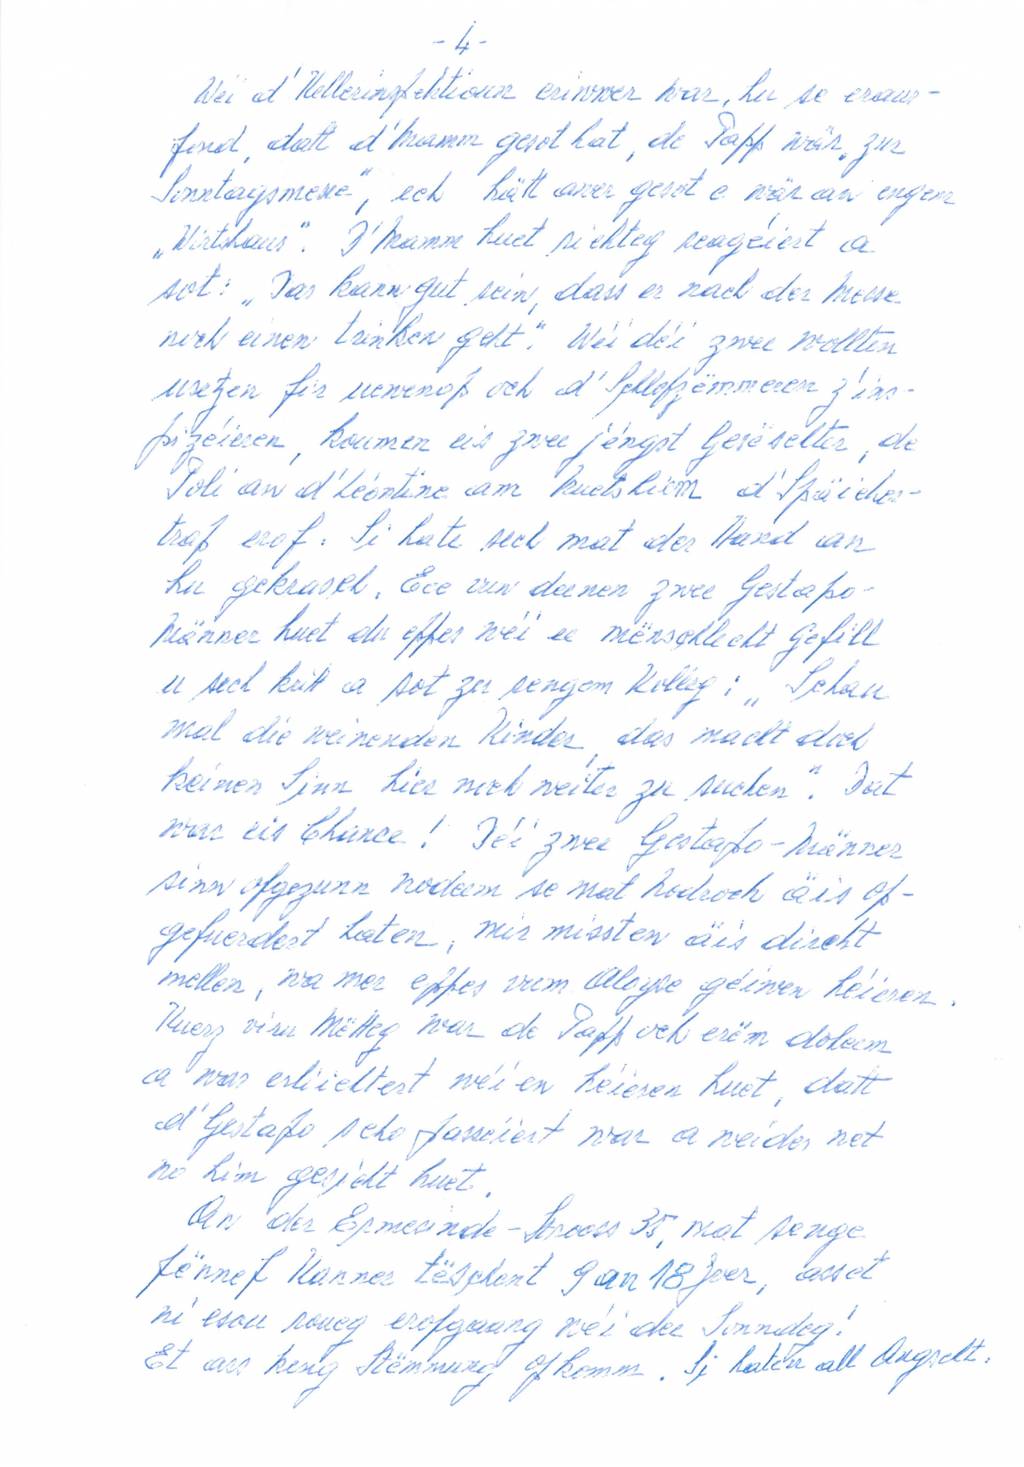 - 4 -
Wéi d'Kellerinspektioun eriwwer war, hu se eraus-
fond, datt d'Mamm gesot hat, de Papp wär „zur
Sonntagsmesse", ech hätt awer gesot e wär an engem
„Wirtshaus". D'Mamm huet richteg reagéiert a
sot: „Das kann gut sein, dass er nach der Messe
noch einen trinken geht". Wéi déi zwee wollten
usetzen fir uewenop och d'Schlofzëmmeren z'ins-
pizéieren, koumen eis zwee jéngst Geséselter, de
Poli an d'Léontine am Nuetshiem d'Späicher-
trap erof. Si hate sech mat der Hand an
hu gekrasch. Ee vun deenen zwee Gestapo-
Männer huet du eppes wéi ee mënschlecht Gefill
u sech kritt a sot zu sengem Kolleg: „Schau
mal die weinenden Kinder, das macht doch
keinen Sinn hier noch weiter zu suchen". Dat
war eis Chance! Déi zwee Gestapo-Männer
sinn ofgezunn nodeem se mat Nodrock äis op-
gefuerdert haten, mir missten äis direkt
mellen, wa mer eppes vum Aloyse géiwen héieren.
Kuerz viru Mëtteg war de Papp och erëm doheem
a war erliichtert wéi en héieren huet, datt
d'Gestapo scho passéiert war a weider net
no him gesicht huet.
An der Ermesinde-Strooss 35, mat senge
fënnef Kanner tëschent 9 an 18 Joer, ass et
ni esou roueg erofgaang wéi dee Sonndeg!
Et ass keng Stëmmung opkomm. Si haten all Angscht.